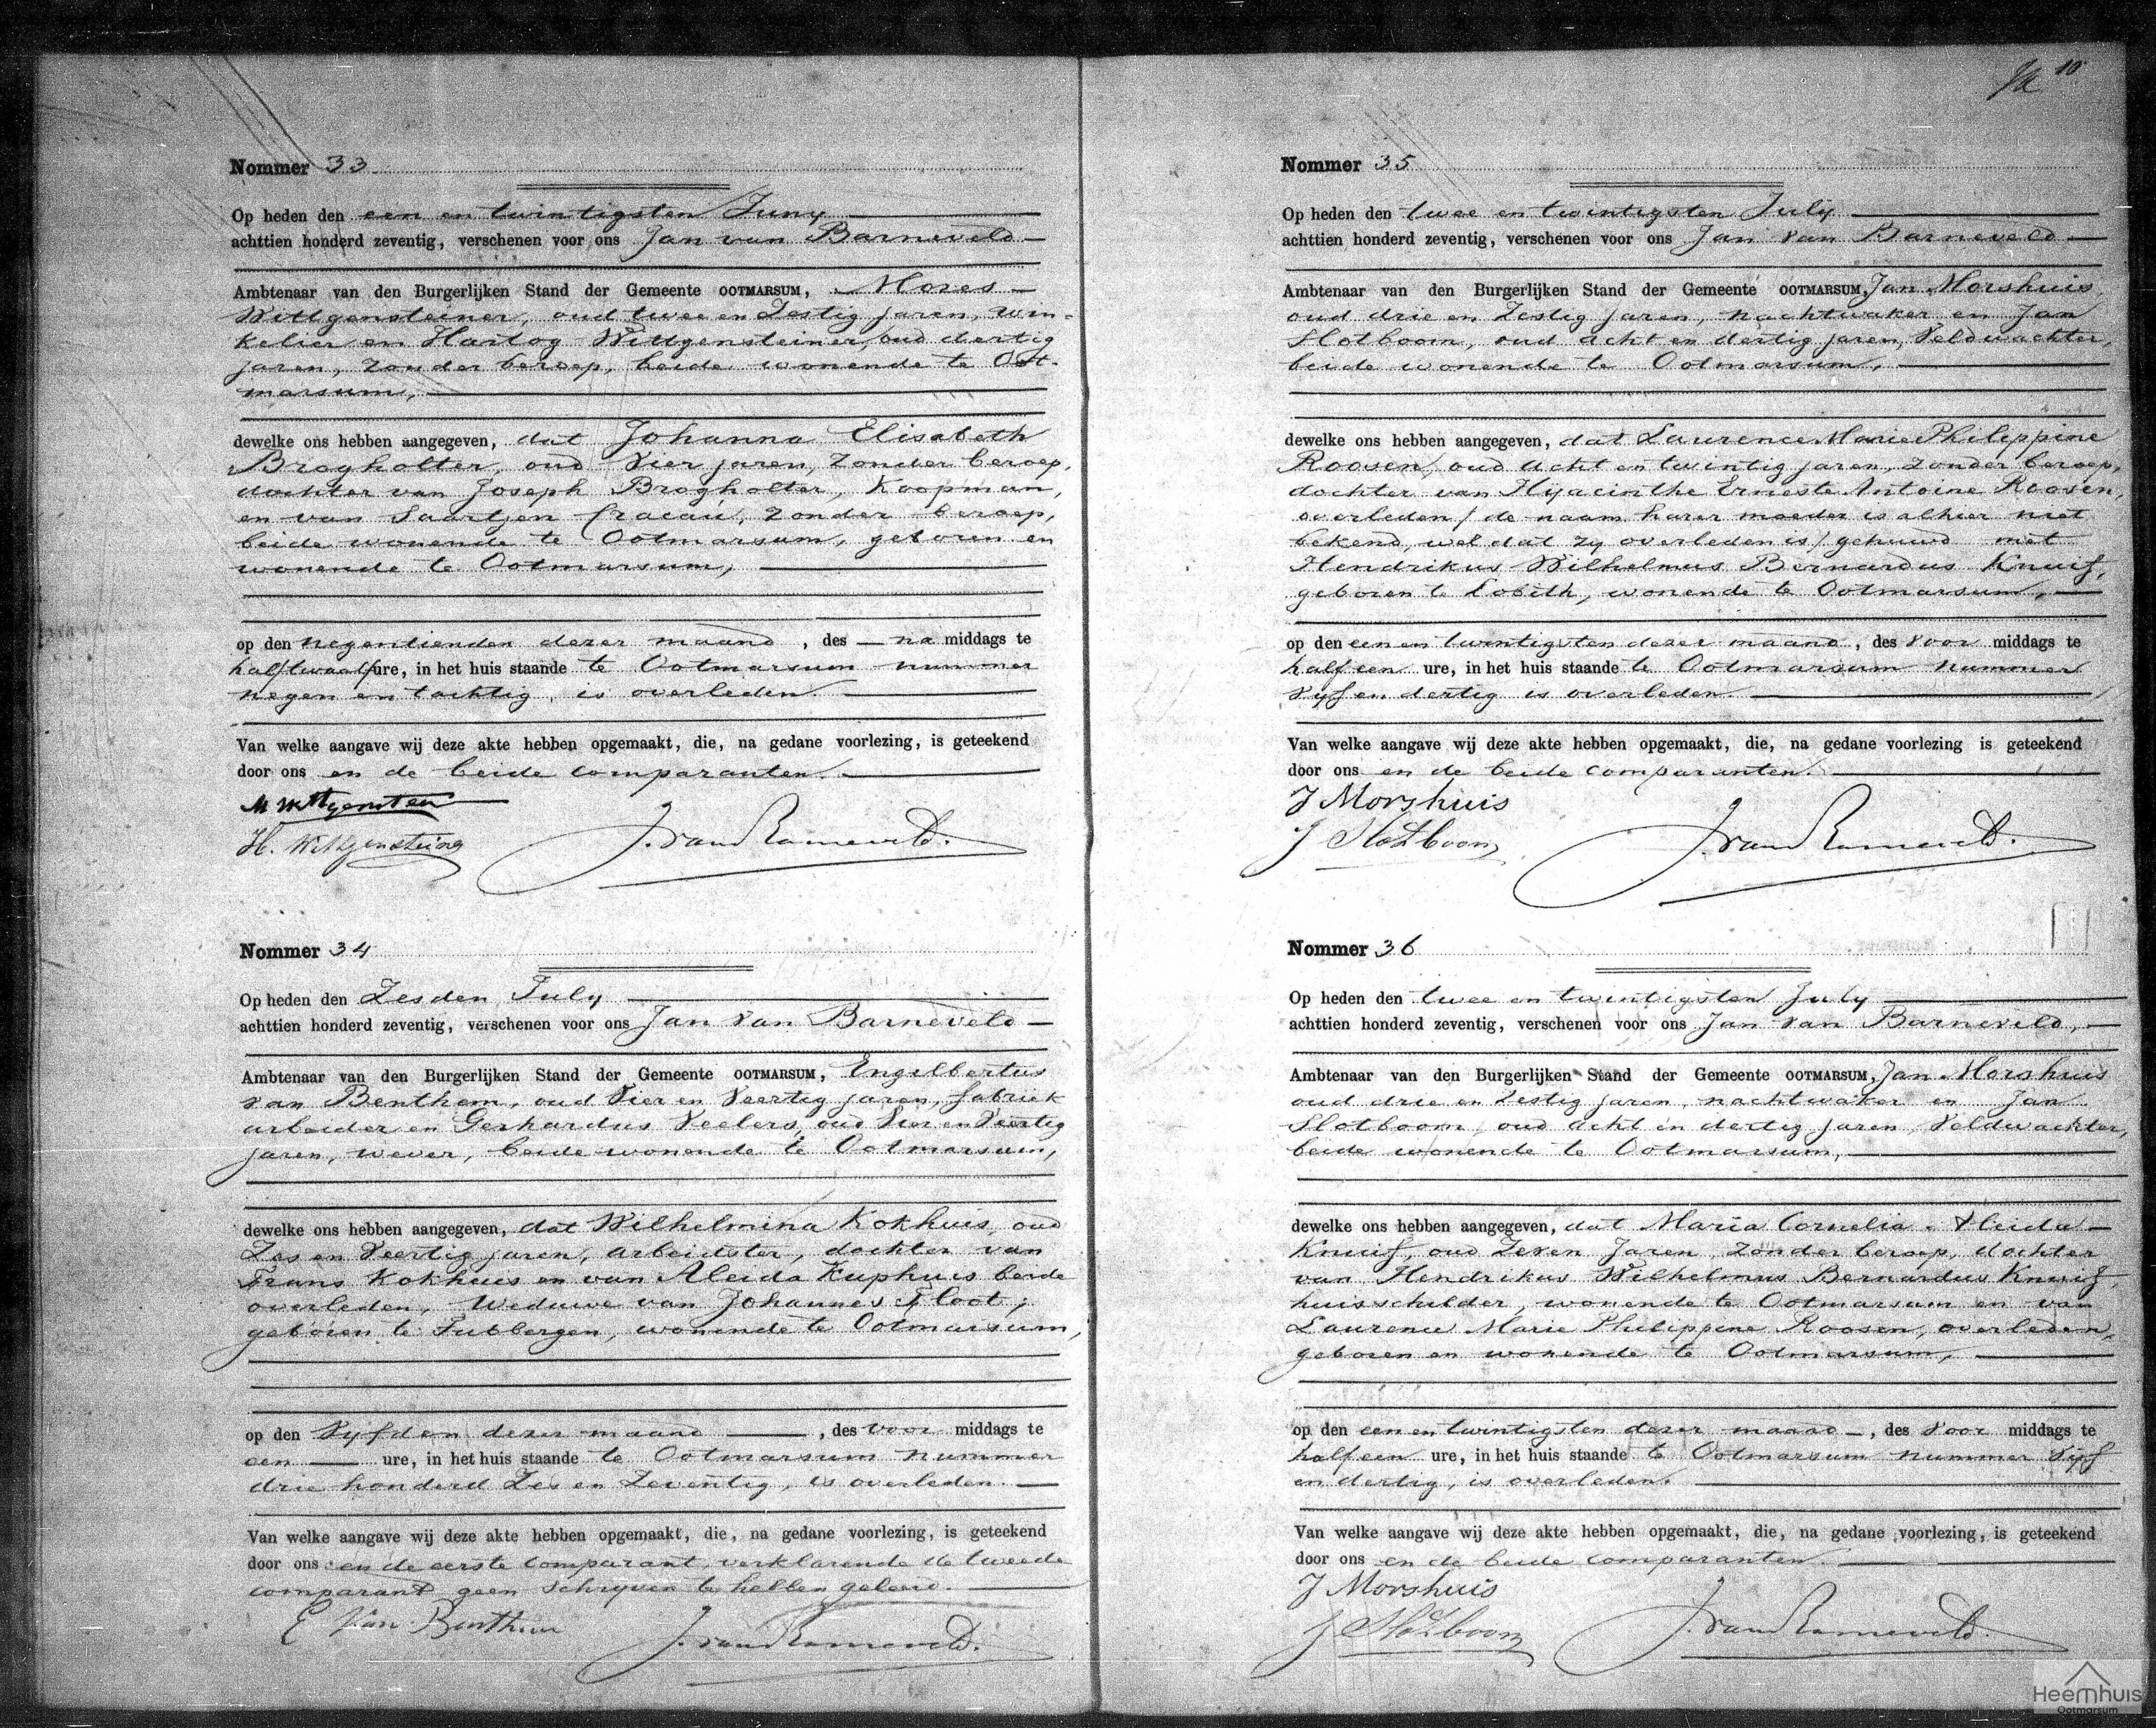 Nommer 33
Op heden den een en twintigsten Juny
achttien honderd zeventig, verschenen voor ons Jan van Barneveld
Ambtenaar van den Burgerlijken Stand der Gemeente OOTMARSUM, Mozes
Wittgensteiner, oud twee en Zestig jaren, win-
kelier en Hartog Wittgensteiner, oud dertig
jaren, zonder beroep, beide wonende te Oot-
marsum,
dewelke ons hebben aangegeven, dat Johanna Elisabeth
Brogholter, oud Vier jaren, zonder beroep,
dochter van Joseph Brogholter, Koopman,
en van Saartjen Cracau, zonder beroep,
beide wonende te Ootmarsum, geboren en
wonende te Ootmarsum,
op den negentienden dezer maand, des na middags te
half twaalf ure, in het huis staande te Ootmarsum nummer
negen en tachtig, is overleden.
Van welke aangave wij deze akte hebben opgemaakt, die, na gedane voorlezing, is geteekend
door ons en de beide comparanten.
J. van Barneveld.
Nommer 34
Op heden den Zesden July
achttien honderd zeventig, verschenen voor ons Jan van Barneveld
Ambtenaar van den Burgerlijken Stand der Gemeente OOTMARSUM, Engelbertus
van Benthem, oud Vier en Veertig jaren, fabriek
arbeider en Gerhardus Veelers, oud Vier en Veertig
jaren, wever, beide wonende te Ootmarsum,
dewelke ons hebben aangegeven, dat Wilhelmina Kokhuis, oud
Zes en Veertig jaren, arbeidster, dochter van
Frans Kokhuis en van Aleida Kuphuis beide
overleden, Weduwe van Johannes Floot,
geboren te Tubbergen, wonende te Ootmarsum,
op den Vyfden dezer maand, des voor middags te
een ure, in het huis staande te Ootmarsum nummer
drie honderd Zes en Zeventig, is overleden.
Van welke aangave wij deze akte hebben opgemaakt, die, na gedane voorlezing, is geteekend
door ons en de eerste comparant, verklarende de tweede
comparant geen schryven te hebben geleerd.
E Van Benthem
J. van Barneveld.
10
Nommer 35
Op heden den twee en twintigsten July
achttien honderd zeventig, verschenen voor ons Jan van Barneveld
Ambtenaar van den Burgerlijken Stand der Gemeente OOTMARSUM, Jan Morshuis
oud drie en Zestig jaren, nachtwaker en Jan
Slotboom, oud acht en dertig jaren, Veldwachter,
beide wonende te Ootmarsum,
dewelke ons hebben aangegeven, dat Laurence Marie Philippine
Roosen, oud acht en twintig jaren, zonder beroep,
dochter van Hyacinthe Erneste Antoine Roosen,
overleden / de naam harer moeder is alhier niet
bekend, wel dat zy overleden is / gehuwd met
Hendrikus Wilhelmus Bernardus Knuif,
geboren te Lobith, wonende te Ootmarsum,
op den een en twintigsten dezer maand, des voor middags te
half een ure, in het huis staande te Ootmarsum nummer
Vyf en dertig is overleden.
Van welke aangave wij deze akte hebben opgemaakt, die, na gedane voorlezing is geteekend
door ons en de beide comparanten.
J Morshuis
J Slotboom
J. van Barneveld.
Nommer 36
Op heden den twee en twintigsten July
achttien honderd zeventig, verschenen voor ons Jan van Barneveld,
Ambtenaar van den Burgerlijken Stand der Gemeente OOTMARSUM, Jan Morshuis
oud drie en Zestig jaren, nachtwaker en Jan
Slotboom, oud acht en dertig jaren, Veldwachter,
beide wonende te Ootmarsum,
dewelke ons hebben aangegeven, dat Maria Cornelia Aleida
Knuif, oud Zeven Jaren, zonder beroep, dochter
van Hendrikus Wilhelmus Bernardus Knuif,
huisschilder, wonende te Ootmarsum en van
Laurence Marie Philippine Roosen, overleden,
geboren en wonende te Ootmarsum,
op den een en twintigsten dezer maand, des voor middags te
half een ure, in het huis staande te Ootmarsum nummer Vyf
en dertig, is overleden.
Van welke aangave wij deze akte hebben opgemaakt, die, na gedane voorlezing, is geteekend
door ons en de beide comparanten.
J Morshuis
J Slotboom
J. van Barneveld.
Heemhuis
Ootmarsum